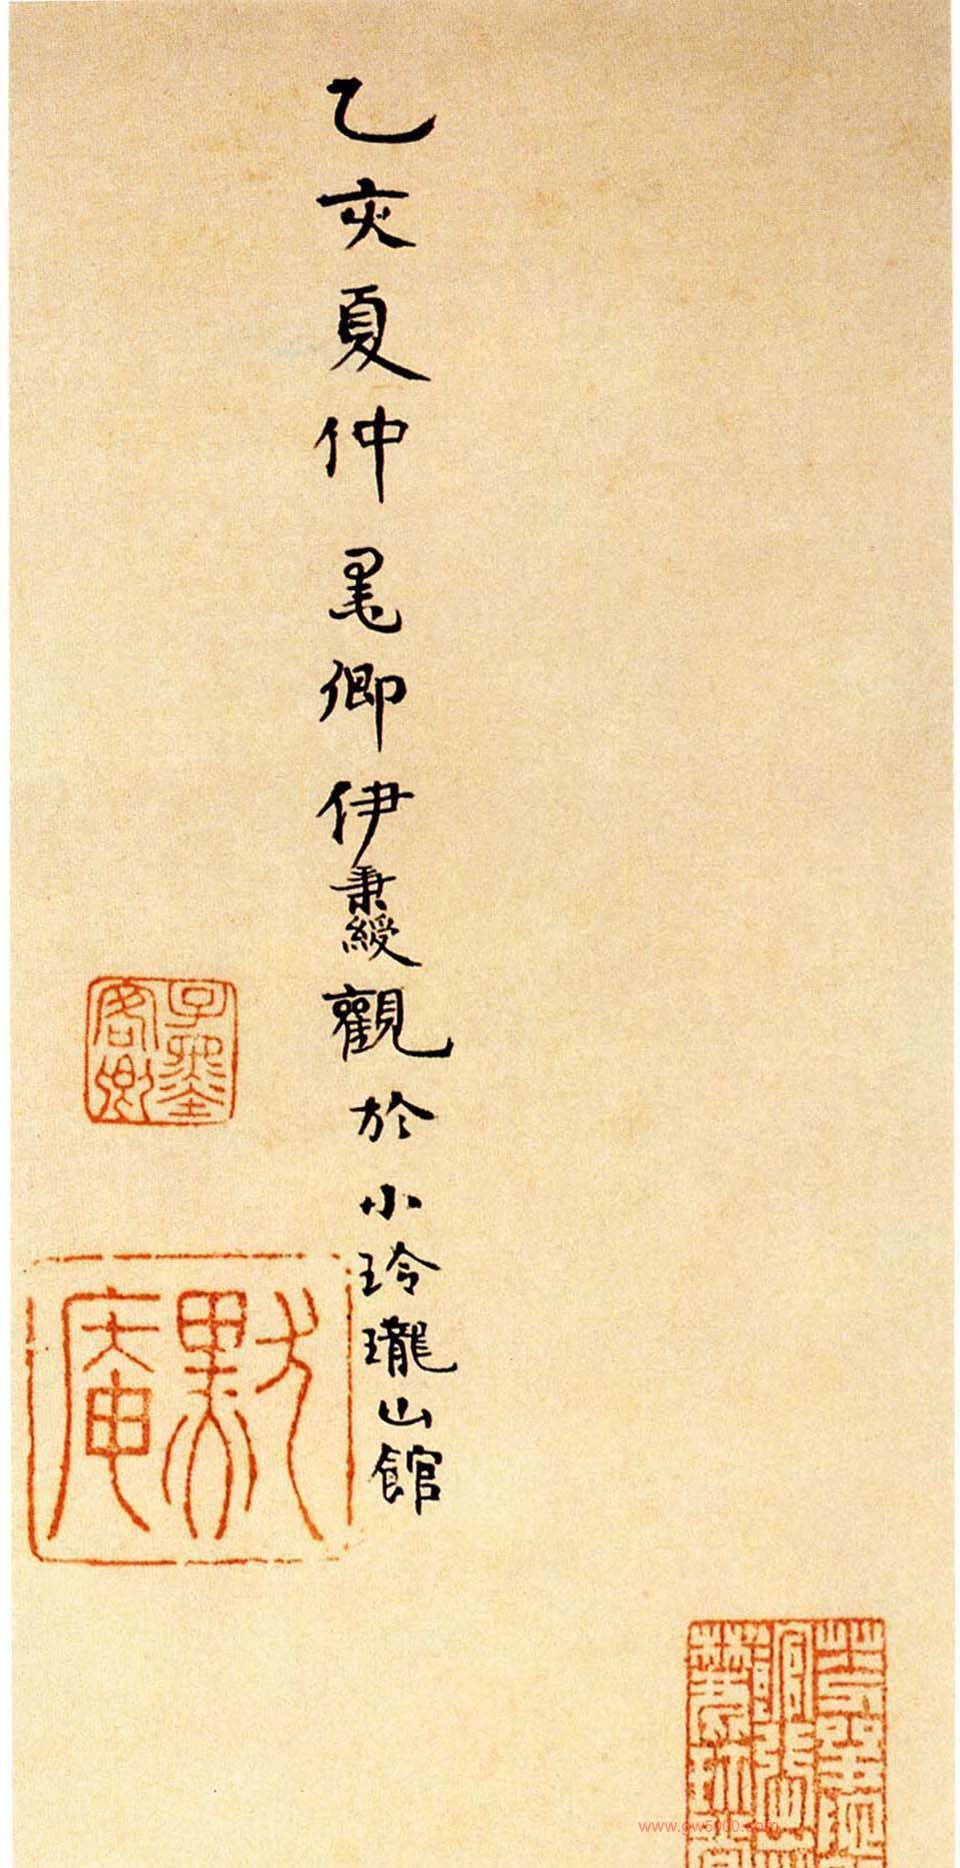 乙亥夏仲墨卿伊秉綬觀於小玲瓏山館
子墨客卿
默庵